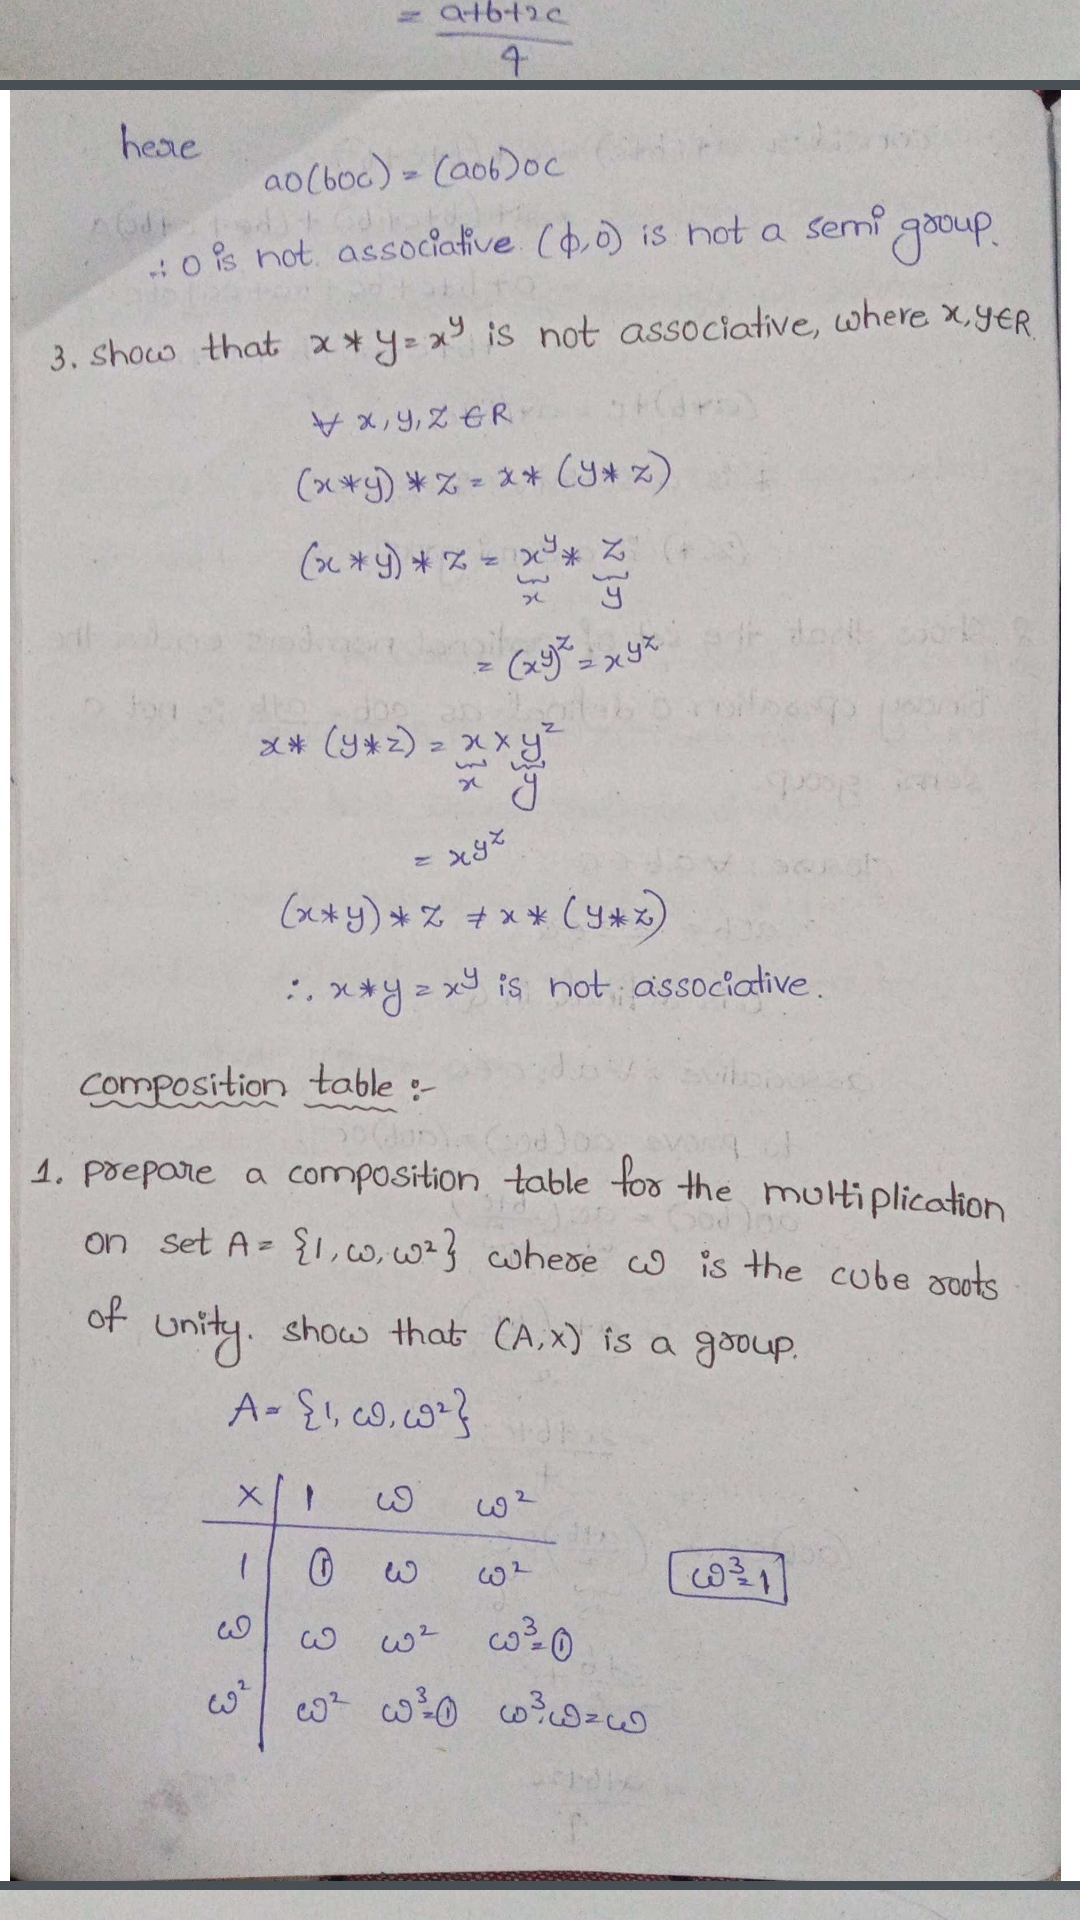 = a+b+2c
4
here
ao(boc) = (aob)oc
∴ o is not associative (ϕ,o) is not a semi group.
3. show that x * y = x^y is not associative, where x,y∈R
∀ x,y,z ∈R
(x*y) * z = x* (y* z)
(x * y) * z = x^y * z
x y
= (x^y)^z = x^yz
x* (y*z) = x × y^z
x y
= x^y^z
(x*y) * z ≠ x * (y*z)
∴ x*y = x^y is not associative.
composition table :-
1. prepare a composition table for the multiplication
on set A = {1, ω, ω²} where ω is the cube roots
of unity. show that (A,×) is a group.
A = {1, ω, ω²}
× 1 ω ω²
1 ① ω ω² ω³=1
ω ω ω² ω³=①
ω² ω² ω³=① ω³.ω=ω